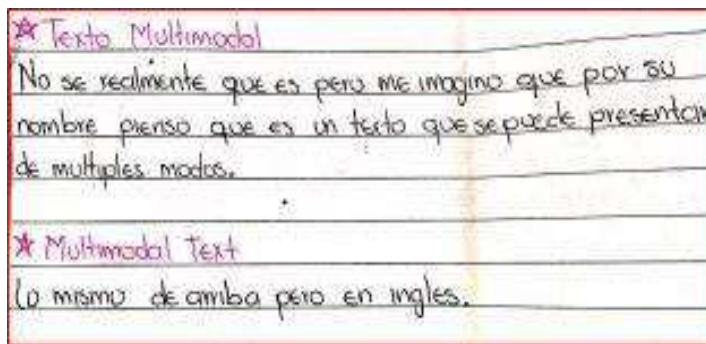 ☆ Texto Multimodal
No se realmente que es pero me imagino que por su
nombre pienso que es un texto que se puede presentar
de multiples modos.
☆ Multimodal Text
Lo mismo de arriba pero en ingles.